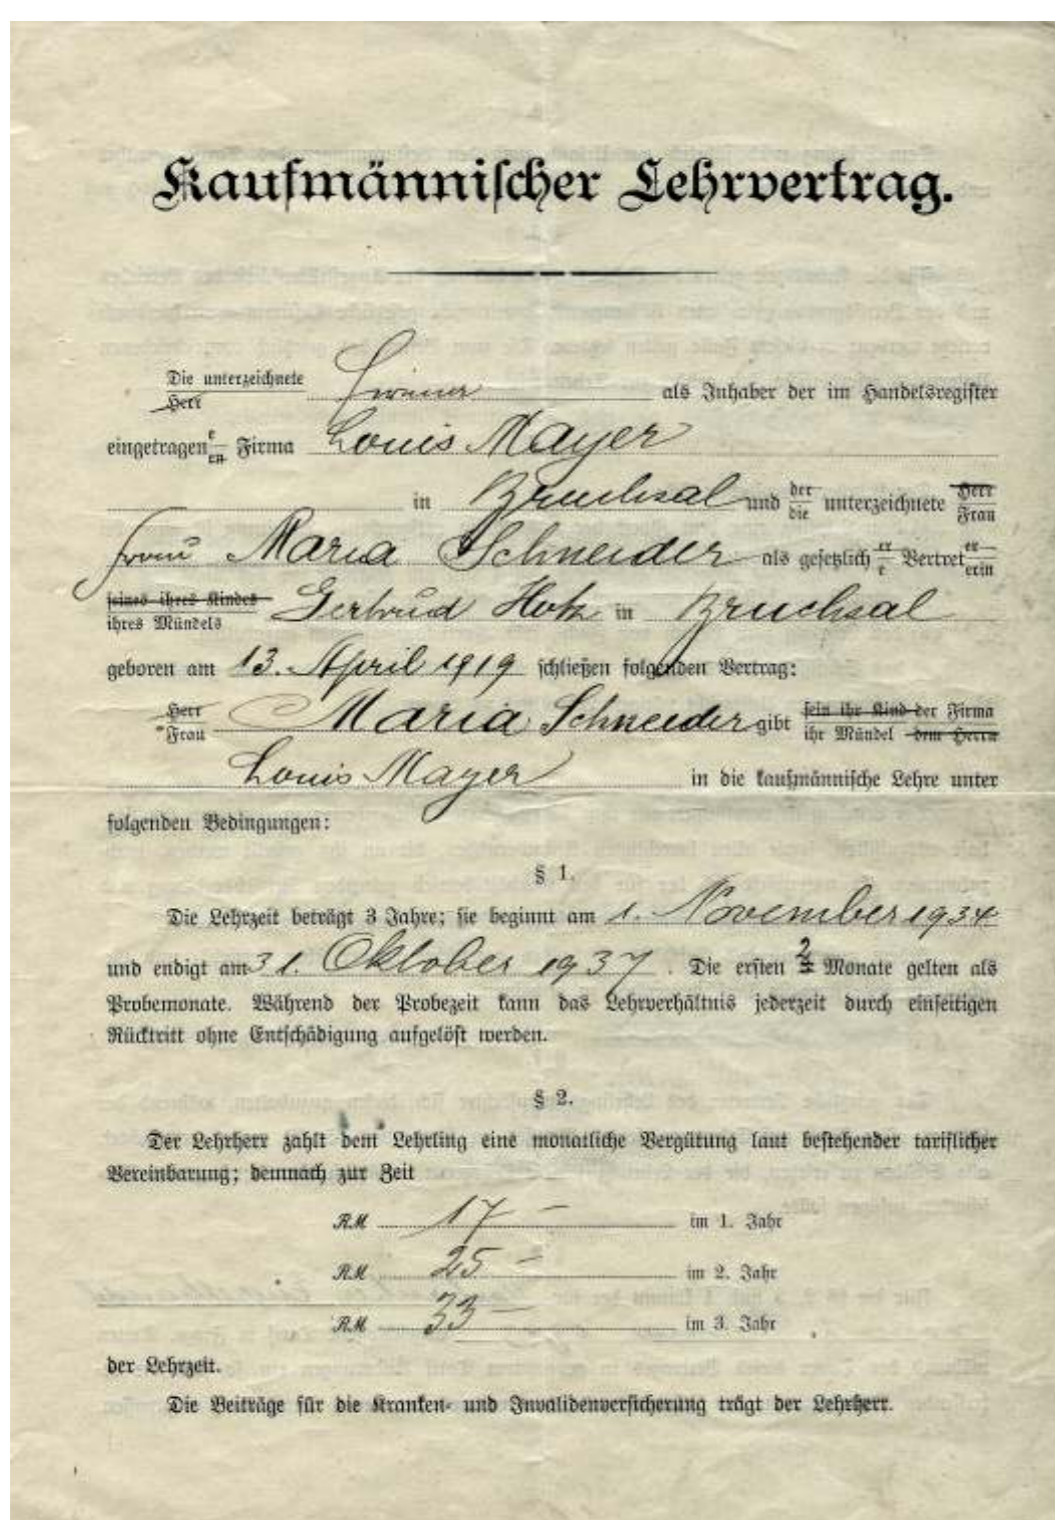 Kaufmännischer Lehrvertrag.
Die unterzeichnete
Herr
Firma als Inhaber der im Handelsregister
eingetragen e/en Firma Louis Mayer
in Bruchsal und der/die unterzeichnete Herr/Frau
Frau Maria Schneider als gesetzlich er/e Vertret er/erin
seines ihres Kindes
ihres Mündels Gertrud Hotz in Bruchsal
geboren am 13. April 1919 schließen folgenden Vertrag:
Herr
Frau Maria Schneider gibt sein ihr Kind der Firma
ihr Mündel dem Herrn
Louis Mayer in die kaufmännische Lehre unter
folgenden Bedingungen:
§ 1.
Die Lehrzeit beträgt 3 Jahre; sie beginnt am 1. November 1934
und endigt am 31. Oktober 1937. Die ersten 2 Monate gelten als
Probemonate. Während der Probezeit kann das Lehrverhältnis jederzeit durch einseitigen
Rücktritt ohne Entschädigung aufgelöst werden.
§ 2.
Der Lehrherr zahlt dem Lehrling eine monatliche Vergütung laut bestehender tariflicher
Vereinbarung; demnach zur Zeit
RM 17 – im 1. Jahr
RM 25 – im 2. Jahr
RM 33 – im 3. Jahr
der Lehrzeit.
Die Beiträge für die Kranken- und Invalidenversicherung trägt der Lehrherr.